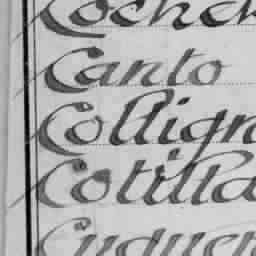 Cocher
Canto
Collign
Cotilla
Cuguen